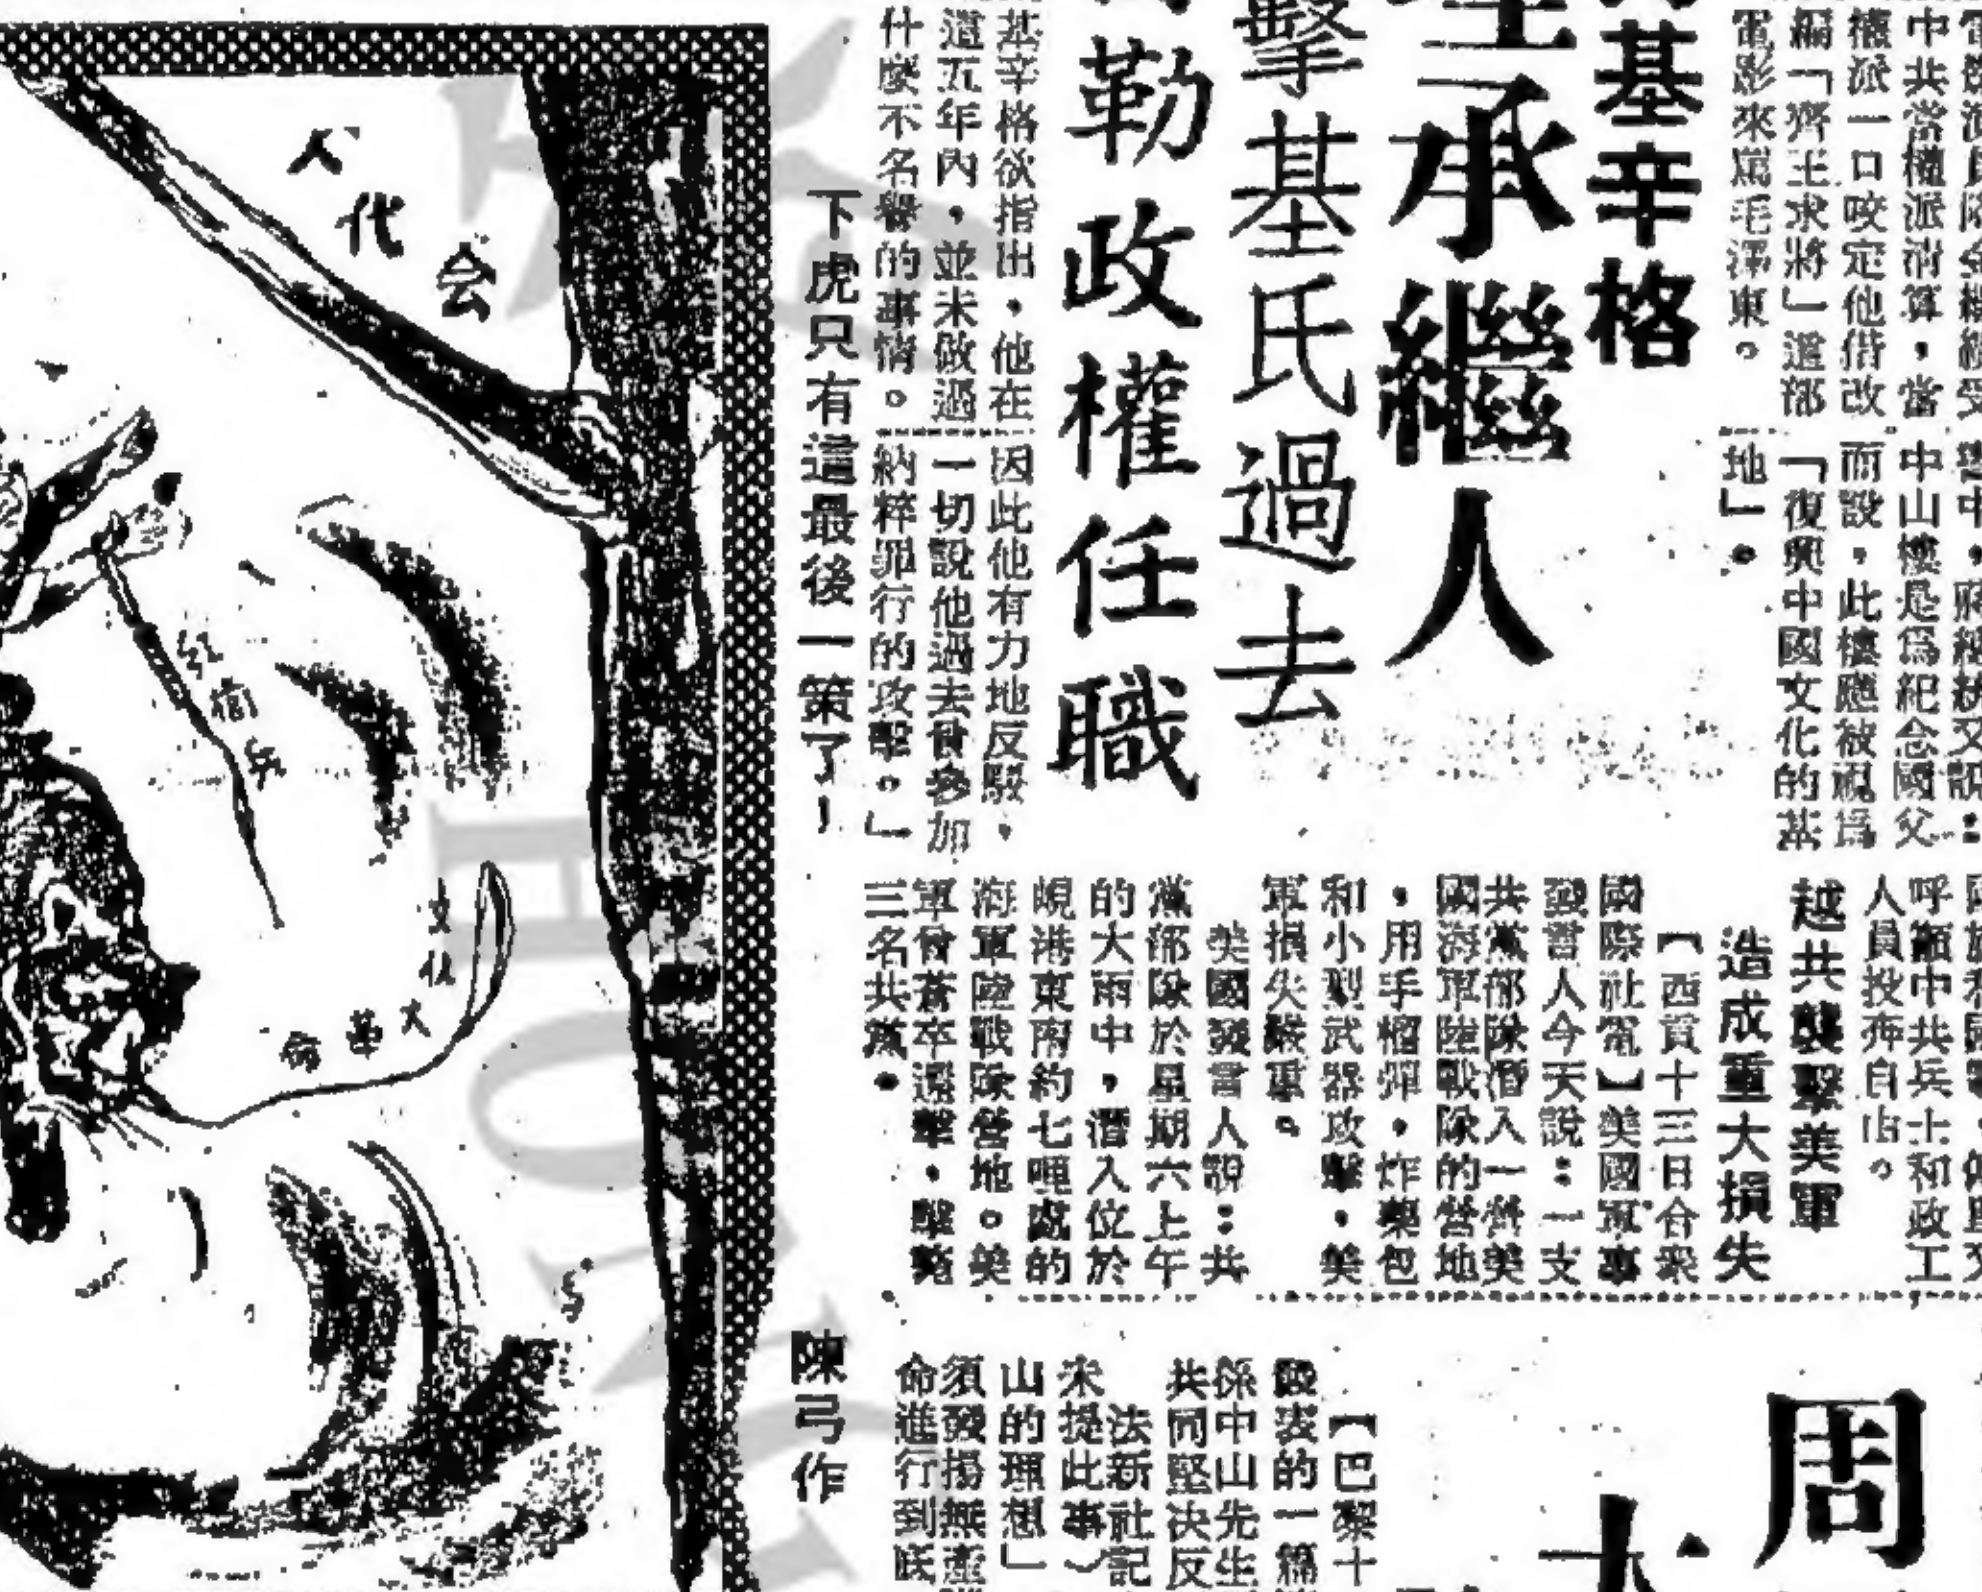 中共當權派清算,當
權派一口咬定他借改
編「齊王求將」這部
電影來罵毛澤東。
中山樓是爲紀念國父
而設,此樓應被視爲
「復興中國文化的基
地」。
基辛格
承繼人
擊基氏過去
勒政權任職
基辛格欲指出,他在
這五年內,並未做過
什麼不名譽的事情。
因此他有力地反駁,
一切說他過去曾參加
納粹罪行的攻擊。」
下虎只有這最後一策了!
陳弓作
人代会
红衛兵
文化大革命
呼籲中共兵士和政工
人員投奔自由。
越共襲擊美軍
造成重大損失
【西貢十三日合衆
國際社電】美國軍事
發言人今天說:一支
共黨部隊潛入一營美
國海軍陸戰隊的營地
,用手榴彈,炸藥包
和小型武器攻擊,美
軍損失嚴重。
美國發言人說:共
黨部隊於星期六上午
的大雨中,潛入位於
峴港東南約七哩處的
海軍陸戰隊營地。美
軍倉卒還擊,擊斃
三名共黨。
周
【巴黎十
發表的一篇
孫中山先生
共同堅決反
法新社記
未提此事)
山的理想」
須發揚無產
命進行到底